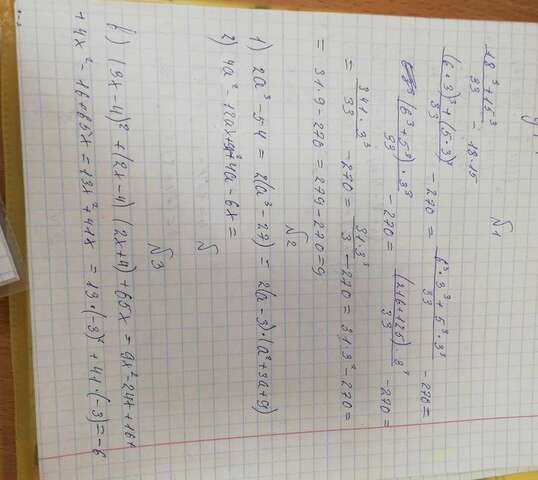 N1
(18³+15³)/33 - 18·15
((6·3)³+(5·3)³)/33 - 270 = (6³·3³+5³·3³)/33 - 270 =
((6³+5³)·3³)/33 - 270 = ((216+125)·3³)/33 - 270 =
= (341·3³)/33 - 270 = (31·3³)/3 - 270 = 31·3² - 270 =
= 31·9 - 270 = 279 - 270 = 9
N2
1) 2a³ - 54 = 2(a³ - 27) = 2(a - 3)·(a² + 3a + 9)
2) 4a² - 12ax + 9x² + 4a - 6x =
N
N3
(3x - 4)² + (2x - 4)(2x + 4) + 65x = 9x² - 24x + 16 +
+ 4x² - 16 + 65x = 13x² + 41x = 13·(-3)² + 41·(-3) = -6